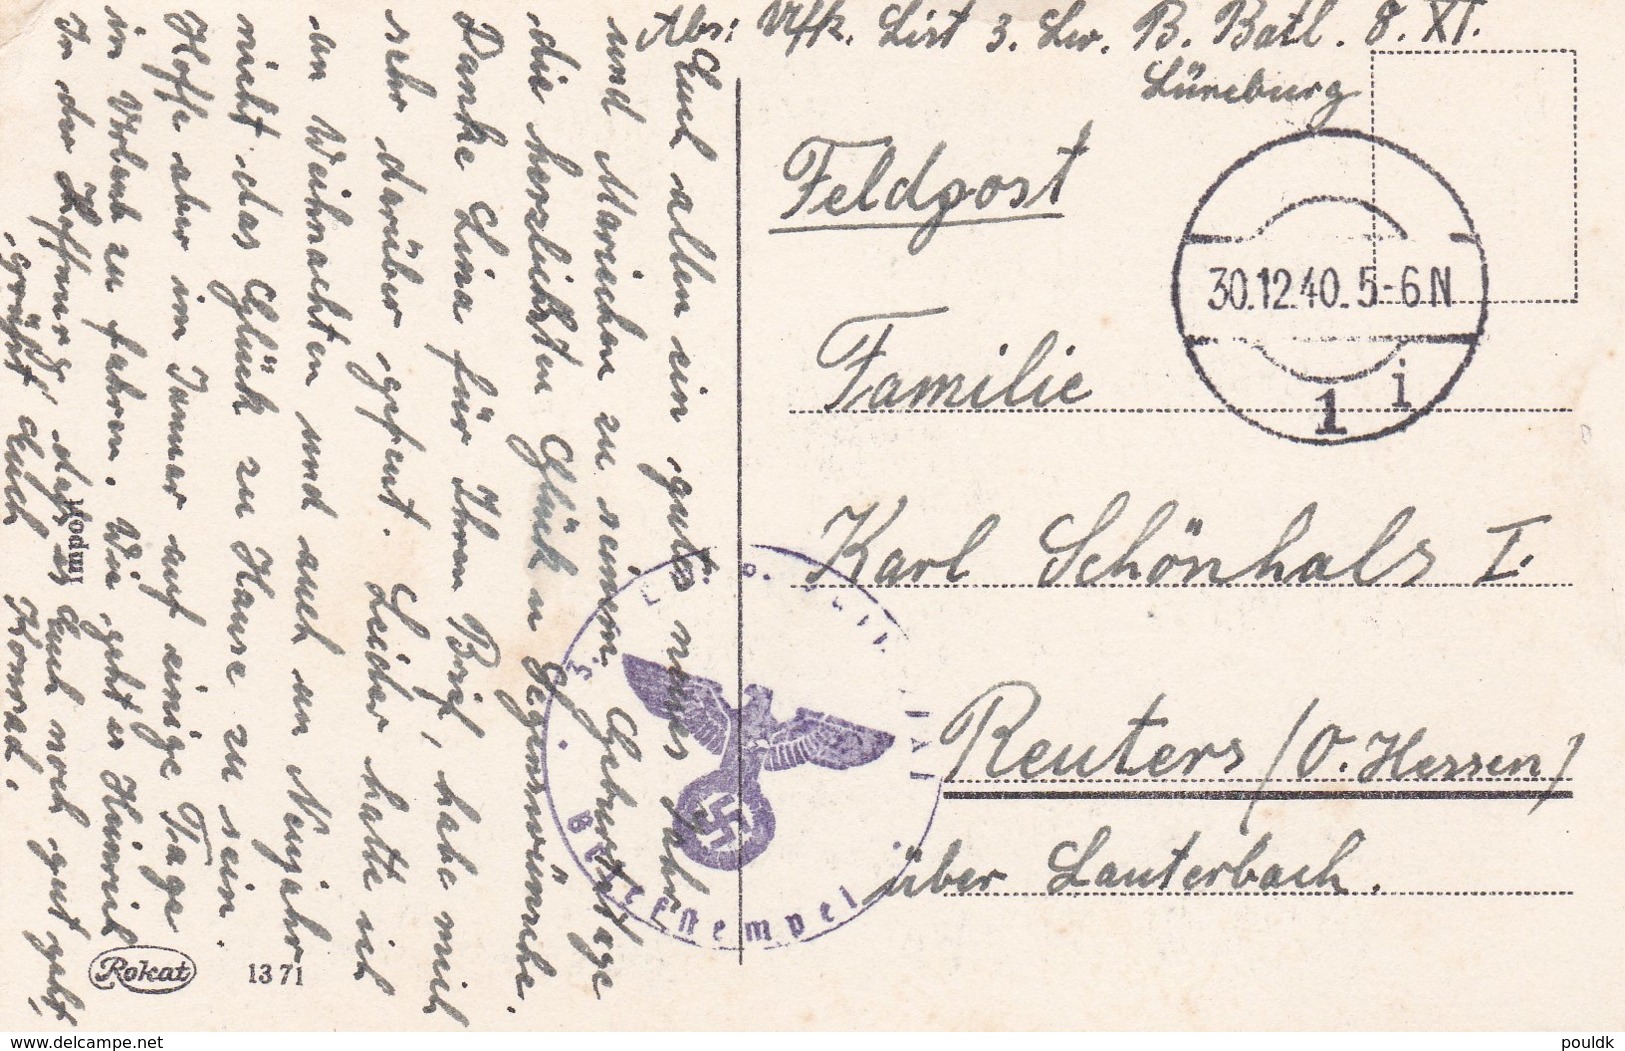 Abs: Uffz. List 3. Lw. B. Batl. 8. XI.
Lüneburg
Feldpost
30.12.40.5-6N
1 i
Familie
Karl Schönhals I.
Reuters /O. Hessen/
über Lauterbach.
Euch allen ein gutes neues Jahr
und Mariechen zu seinem Geburtstage
die herzlichsten Glück u Segenswünsche.
Danke Lina für Ihren Brief, habe mich
sehr darüber gefreut. Leider hatte ich
an Weihnachten und auch an Neujahr
nicht das Glück zu Hause zu sein.
Hoffe aber im Januar auf einige Tage
in Urlaub zu fahren. Wie geht es Heinrich
In der Hoffnung, daß es Euch noch gut geht,
grüßt Euch Konrad.
3.
Briefstempel
Rokat
1371
www.delcampe.net
pouldk